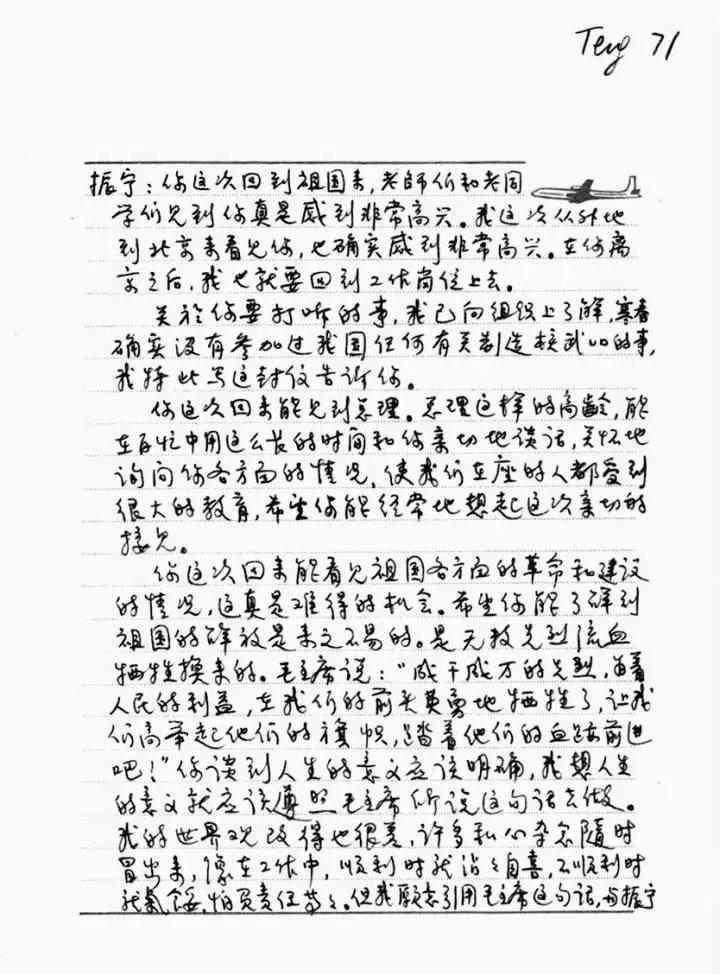 Teng 71
振宁：你这次回到祖国来，老師们和老同
学们见到你真是感到非常高兴。我这次从外地
到北京来看见你，也确实感到非常高兴。在你离
京之后，我也就要回到工作岗位上去。
关於你要打听的事，我已向组织上了解，寒春
确实没有参加过我国任何有关制造核武四的事，
我特此写这封信告诉你。
你这次回来能见到总理。总理这样的高龄，能
在百忙中用这么长的时间和你亲切地谈话，关怀地
询问你各方面的情况，使我们在座的人都受到
很大的教育，希望你能经常地想起这次亲切的
接见。
你这次回来能看见祖国各方面的革命和建设
的情况，这真是难得的机会。希望你能了解到
祖国的解放是来之不易的。是无数先烈流血
牺牲换来的。毛主席说：“成千成万的先烈，为着
人民的利益，在我们的前头英勇地牺牲了，让我
们高举起他们的旗帜，踏着他们的血迹前进
吧！”你谈到人生的意义应该明确，我想人生
的意义就应该遵照毛主席所说这句话去做。
我的世界观改得也很差，许多私心杂念随时
冒出来，像在工作中，顺利时就沾沾自喜，不顺利时
就氣馁，怕负责任等等。但我愿意引用毛主席这句话，与振宁